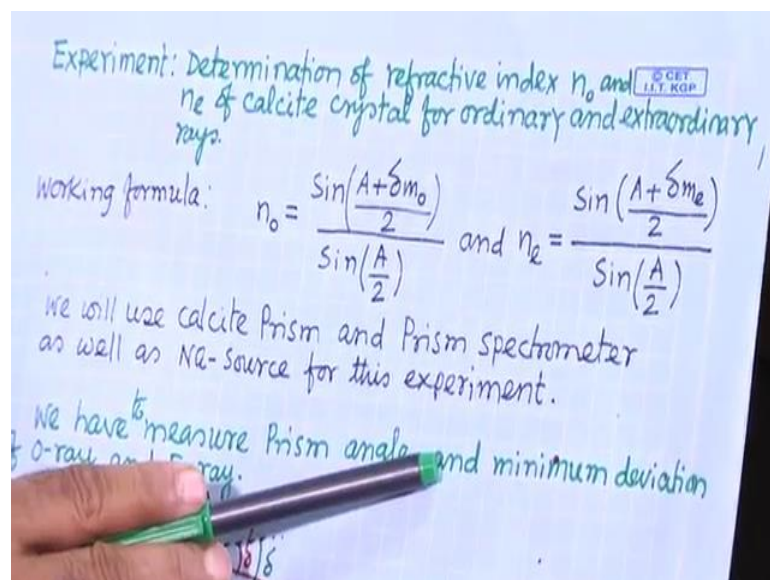 Experiment: Determination of refractive index n₀ and © CET I.I.T. KGP
ne of calcite crystal for ordinary and extraordinary
rays.
Working formula: n₀ = Sin((A+δm₀)/2) / Sin(A/2) and nₑ = Sin((A+δmₑ)/2) / Sin(A/2)
We will use calcite Prism and Prism spectrometer
as well as Na-source for this experiment.
We have to measure Prism angle and minimum deviation
O-ray and ray.